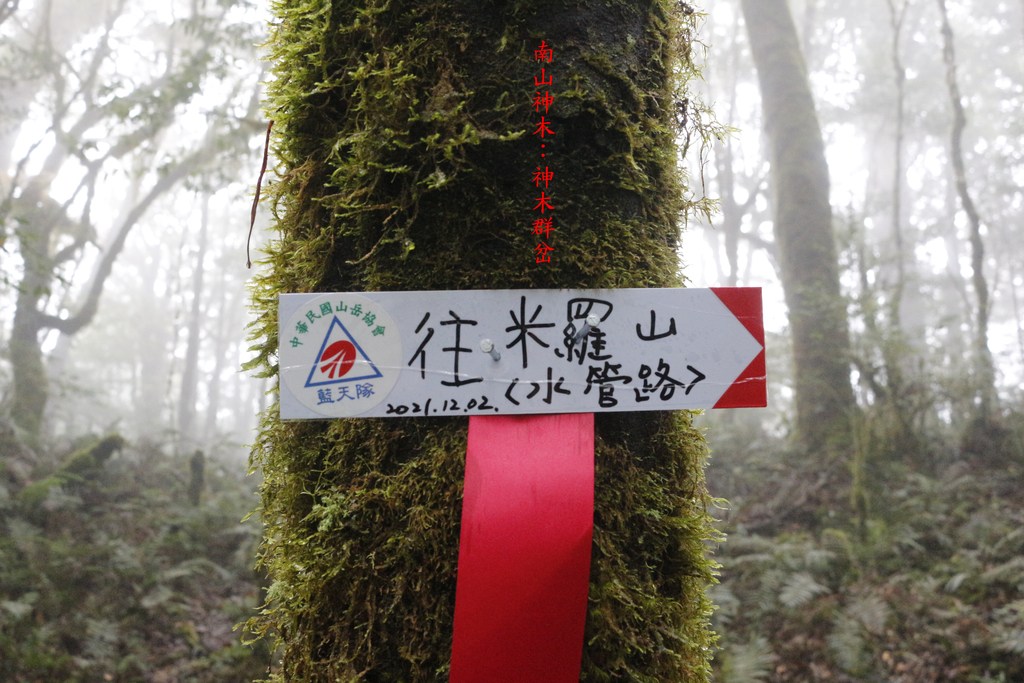 南山神木：神木群岔
中華民國山岳協會
藍天隊
往米羅山
2021.12.02.
<水管路>